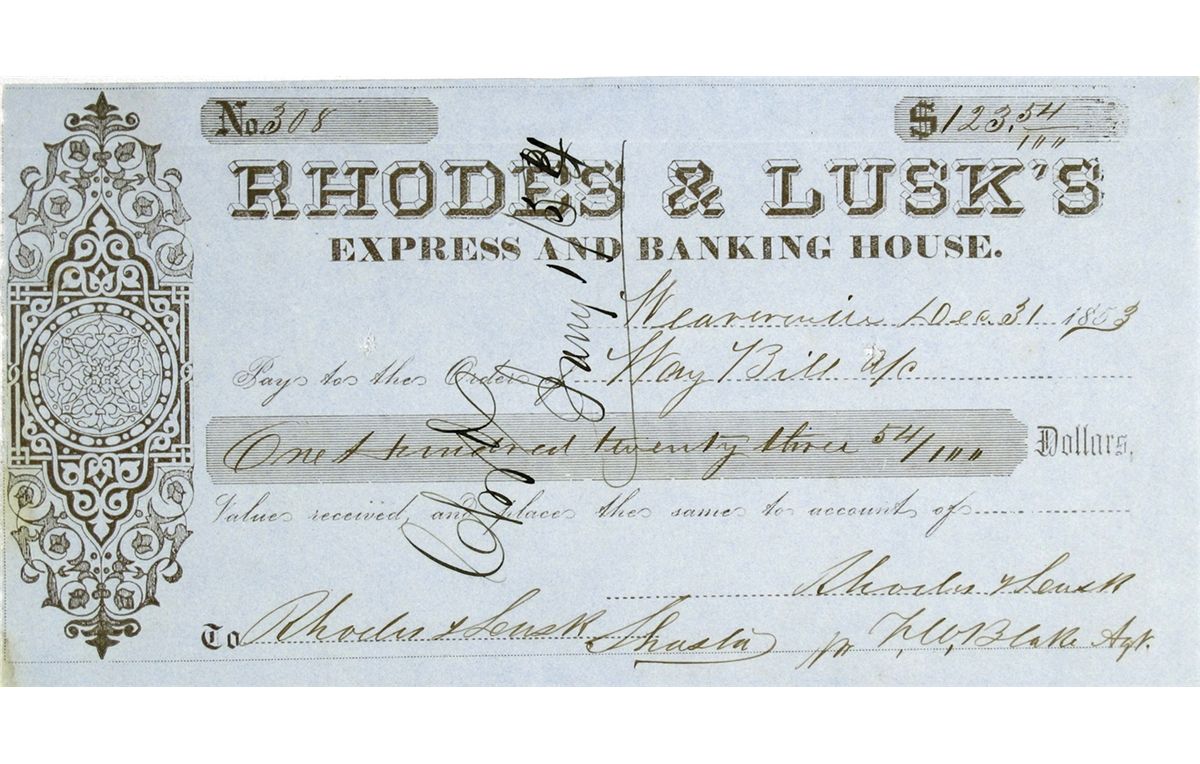 No. 308
$123.54/100
RHODES & LUSK'S
EXPRESS AND BANKING HOUSE.
Weaverville Dec. 31 1853
Pay to the Order of Way Bill a/c
One hundred twenty three 54/100 Dollars,
Value received and place the same to account of
Rhodes & Lusk
To Rhodes & Lusk Shasta
pr F. W. Blake Agt.
Jany 1/54